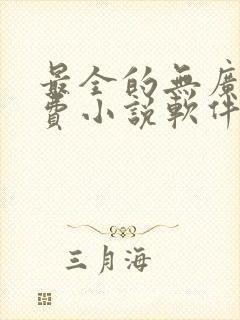 最全的無廣
費小說軟件
三月海